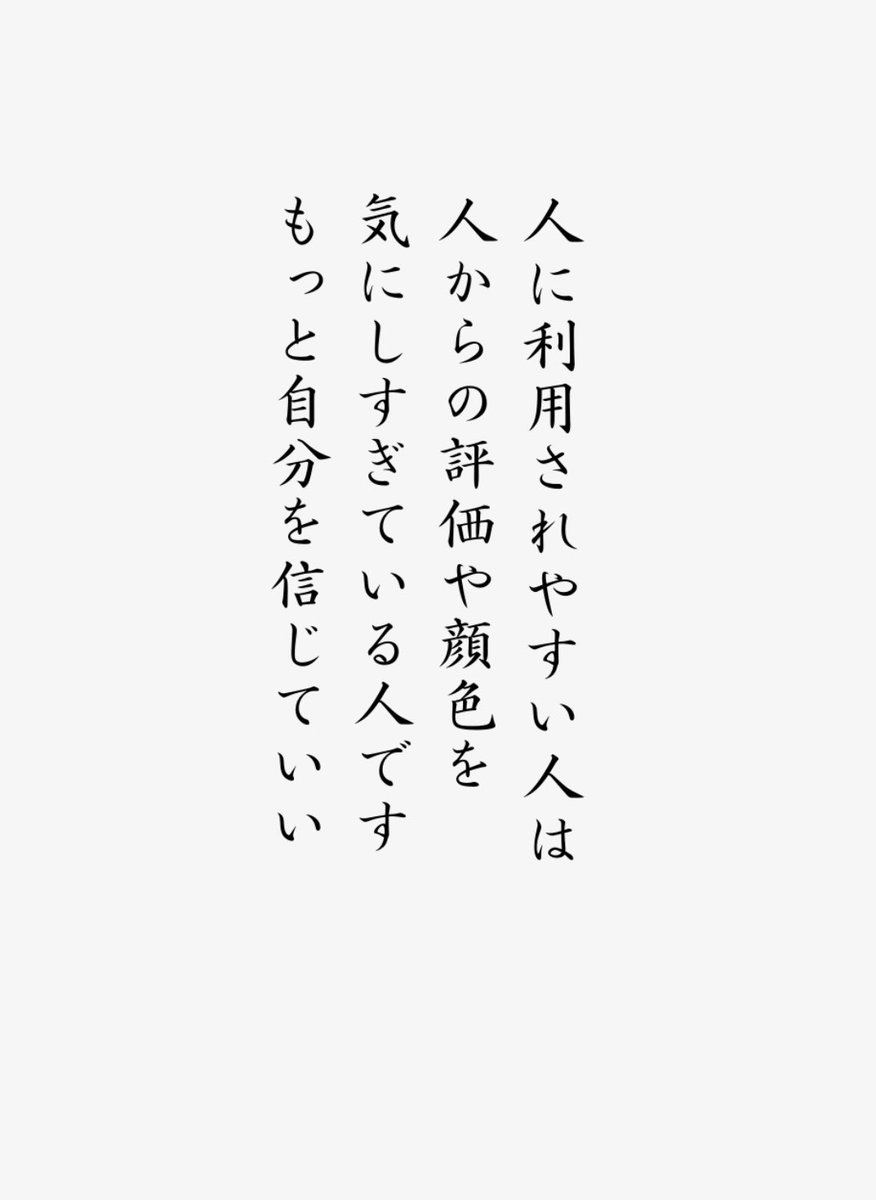 人に利用されやすい人は
人からの評価や顔色を
気にしすぎている人です
もっと自分を信じていい